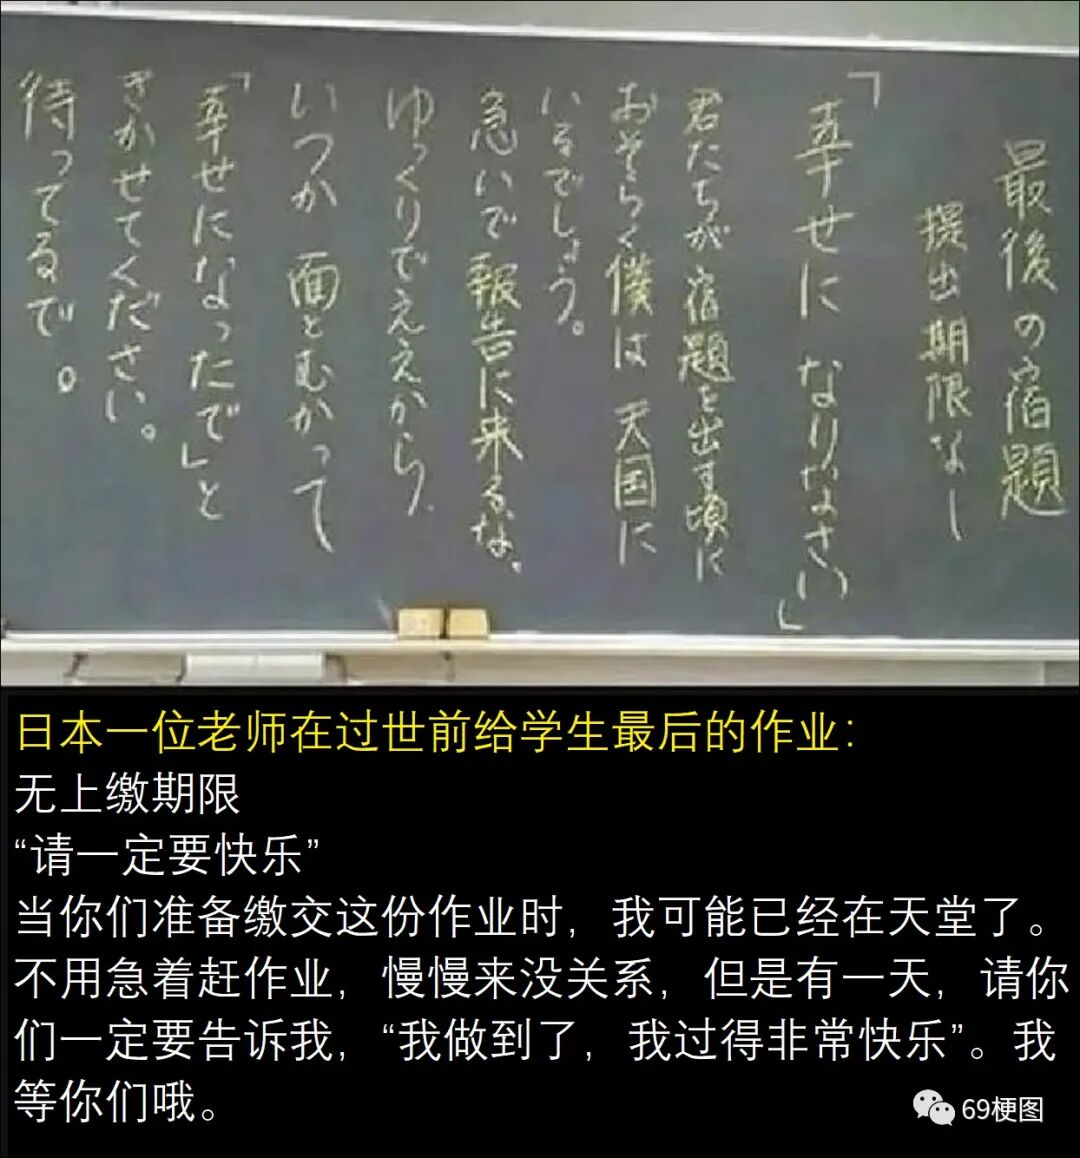 最後の宿題
提出期限なし
「幸せに なりなさい」
君たちが宿題を出す頃に
おそらく僕は天国に
いるでしょう。
急いで報告に来るな。
ゆっくりでええから
いつか面とむかって
「幸せになったで」と
きかせてください。
待ってるで。
日本一位老师在过世前给学生最后的作业：
无上缴期限
“请一定要快乐”
当你们准备缴交这份作业时，我可能已经在天堂了。
不用急着赶作业，慢慢来没关系，但是有一天，请你
们一定要告诉我，“我做到了，我过得非常快乐”。我
等你们哦。
69梗图